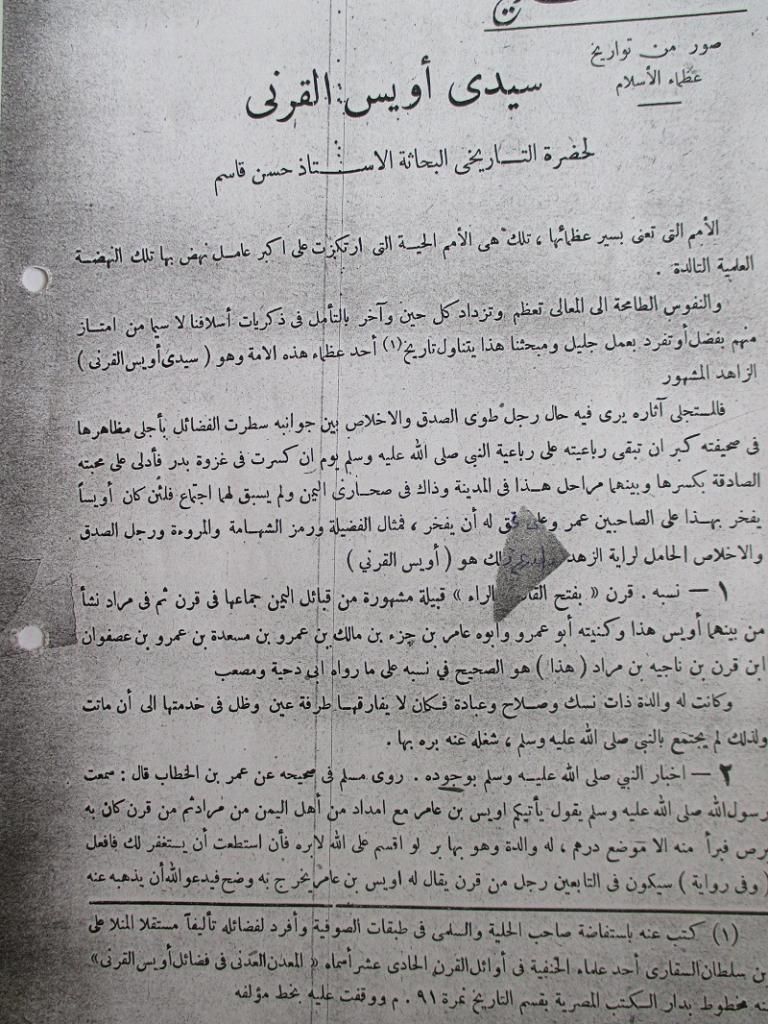 صور من تواريخ
عظماء الأسلام
سيدى أويس القرنى
لحضرة التاريخى البحاثة الاستاذ حسن قاسم
الأمم التى تعنى بسير عظمائها ، تلك هى الأمم الحية التى ارتكزت على اكبر عامل نهض بها تلك النهضة
العلمية التالدة .
والنفوس الطامحة الى المعالى تعظم وتزداد كل حين وآخر بالتأمل فى ذكريات أسلافنا لا سيما من امتاز
منهم بفضل أو تفرد بعمل جليل ومبحثنا هذا يتناول تاريخ (١) أحد عظماء هذه الامة وهو ( سيدى أويس القرنى )
الزاهد المشهور
فالمستجلى آثاره يرى فيه حال رجل طوى الصدق والاخلاص بين جوانبه سطرت الفضائل بأجلى مظاهرها
فى صحيفته كبر ان تبقى رباعيته على رباعية النبي صلى الله عليه وسلم يوم ان كسرت فى غزوة بدر فأدلى على محبته
الصادقة بكسرها وبينهما مراحل هذا فى المدينة وذاك فى صحارى اليمن ولم يسبق لهما اجتماع فلئن كان أويساً
يفخر بهذا على الصاحبين عمر وعلى فحق له أن يفخر ، فمثال الفضيلة ورمز الشهامة والمروءة ورجل الصدق
والاخلاص الحامل لراية الزهد هو ( أويس القرني )
١ — نسبه . قرن « بفتح القاف الراء » قبيلة مشهورة من قبائل اليمن جماعها فى قرن ثم فى مراد نشأ
من بينهما أويس هذا وكنيته أبو عمرو وأبوه عامر بن جزء بن مالك بن عمرو بن مسعدة بن عمرو بن عصفوان
ابن قرن بن ناجيه بن مراد ( هذا ) هو الصحيح في نسبه على ما رواه ابى دحية ومصعب
وكانت له والدة ذات نسك وصلاح وعبادة فكان لا يفارقها طرفة عين وظل فى خدمتها الى أن ماتت
ولذلك لم يجتمع بالنبي صلى الله عليه وسلم ، شغله عنه بره بها .
٢ — اخبار النبي صلى الله عليه وسلم بوجوده . روى مسلم فى صحيحه عن عمر بن الخطاب قال : سمعت
رسول الله صلى الله عليه وسلم يقول يأتيكم اويس بن عامر مع امداد من أهل اليمن من مراد ثم من قرن كان به
برص فبرأ منه الا موضع درهم ، له والدة وهو بها بر لو اقسم على الله لابره فأن استطعت أن يستغفر لك فافعل
( وفى رواية ) سيكون فى التابعين رجل من قرن يقال له اويس بن عامر يخرج به وضح فيدعو الله أن يذهبه عنه
(١) كتب عنه باستفاضة صاحب الحلية والسلمى فى طبقات الصوفية وأفرد لفضائله تأليفاً مستقلا المنلا على
بن سلطان السقارى أحد علماء الحنفية فى أوائل القرن الحادى عشر أسماه « المعدن العدنى فى فضائل أويس القرنى »
منه مخطوط بدار الكتب المصرية بقسم التاريخ نمرة ٩١ . م ووقفت عليه بخط مؤلفه